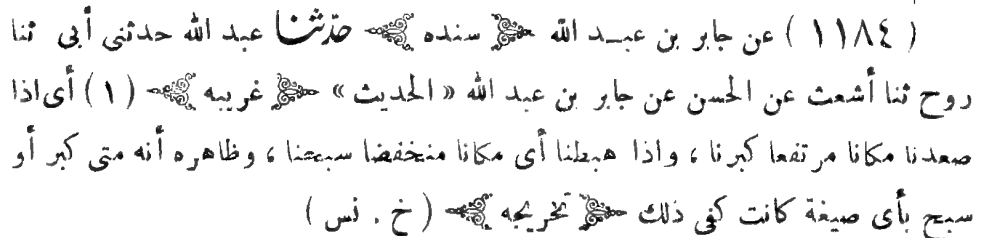 ( ١١٨٤ ) عن جابر بن عبد الله ﴿ سنده ﴾ حدّثنا عبد الله حدثنى أبى ثنا
روح ثنا أشعث عن الحسن عن جابر بن عبد الله « الحديث » ﴿ غريبه ﴾ ( ١ ) أى اذا
صعدنا مكانا مرتفعا كبرنا ، واذا هبطنا أى مكانا منخفضا سبحنا ، وظاهره أنه متى كبر أو
سبح بأى صيغة كانت كفى ذلك ﴿ تخريجه ﴾ ( خ . نس )